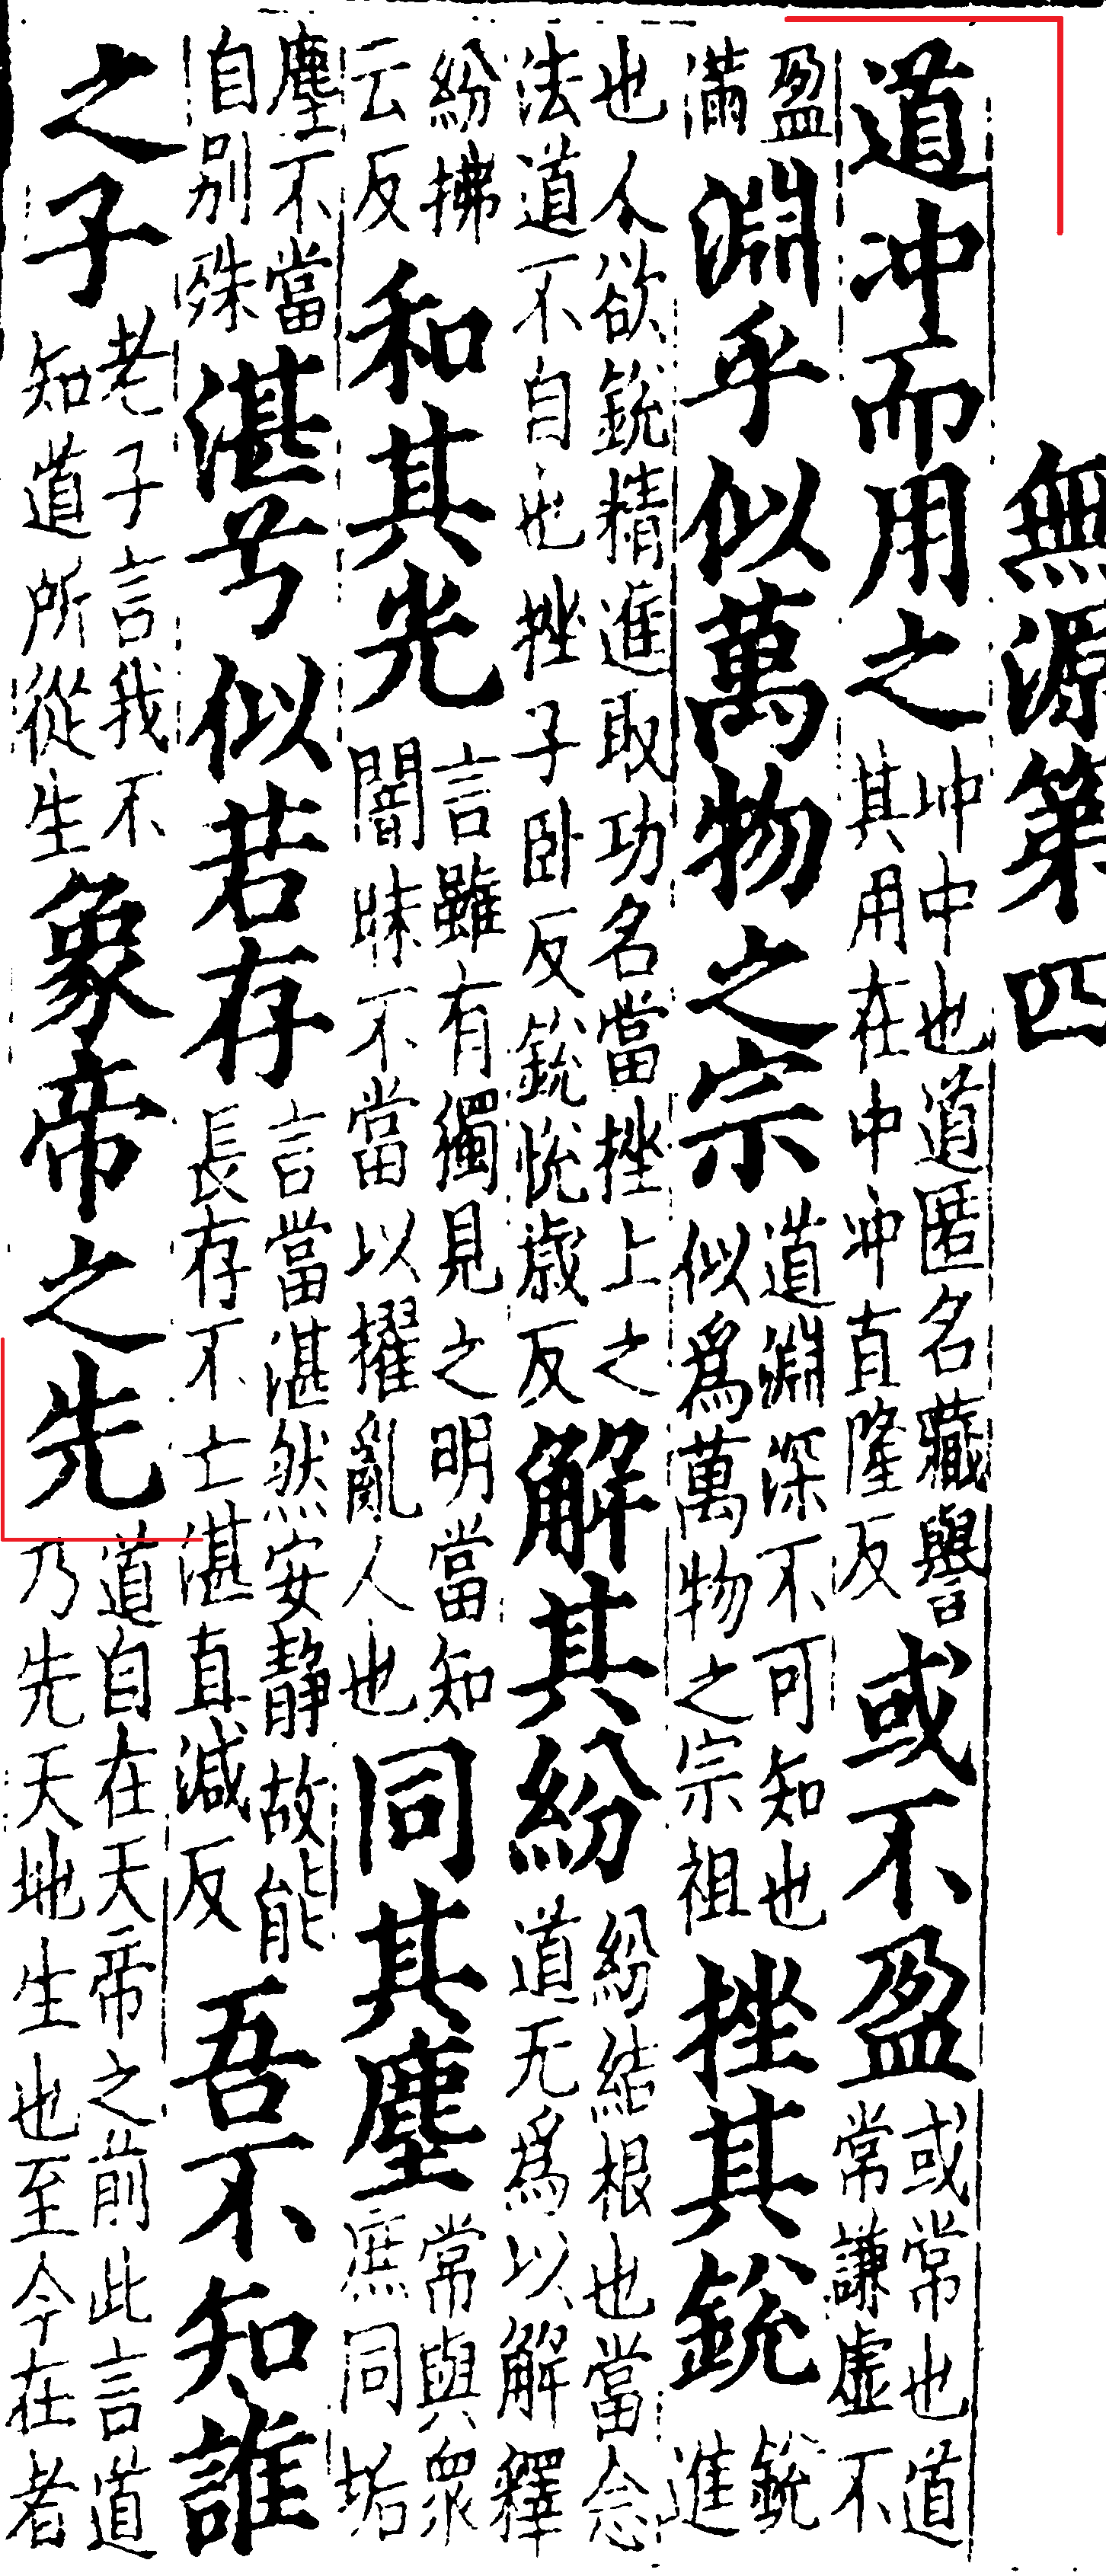 無源第四
道冲而用之
冲中也道匿名藏譽
其用在中冲直隆反
或不盈
或常也道
常謙虛不
盈
滿
淵乎似萬物之宗
道淵深不可知也
似爲萬物之宗祖
挫其銳
銳
進
也人欲銳精進取功名當挫上之
法道不自也挫子卧反銳悦歲反
解其紛
紛結根也當念
道无爲以解釋
紛拂
云反
和其光
言雖有獨見之明當知
闇昧不當以擢亂人也
同其塵
常與衆
庶同垢
塵不當
自别殊
湛兮似若存
言當湛然安靜故能
長存不亡湛直減反
吾不知誰
之子
老子言我不
知道所從生
象帝之先
道自在天帝之前此言道
乃先天地生也至今在者